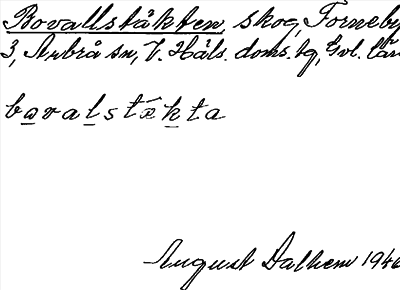 Bovallstäkten, skog, Forneby
3, Arbrå sn, V. Häls. doms.tg, Gvl. län
bovalstækta
August Dalhem 1946